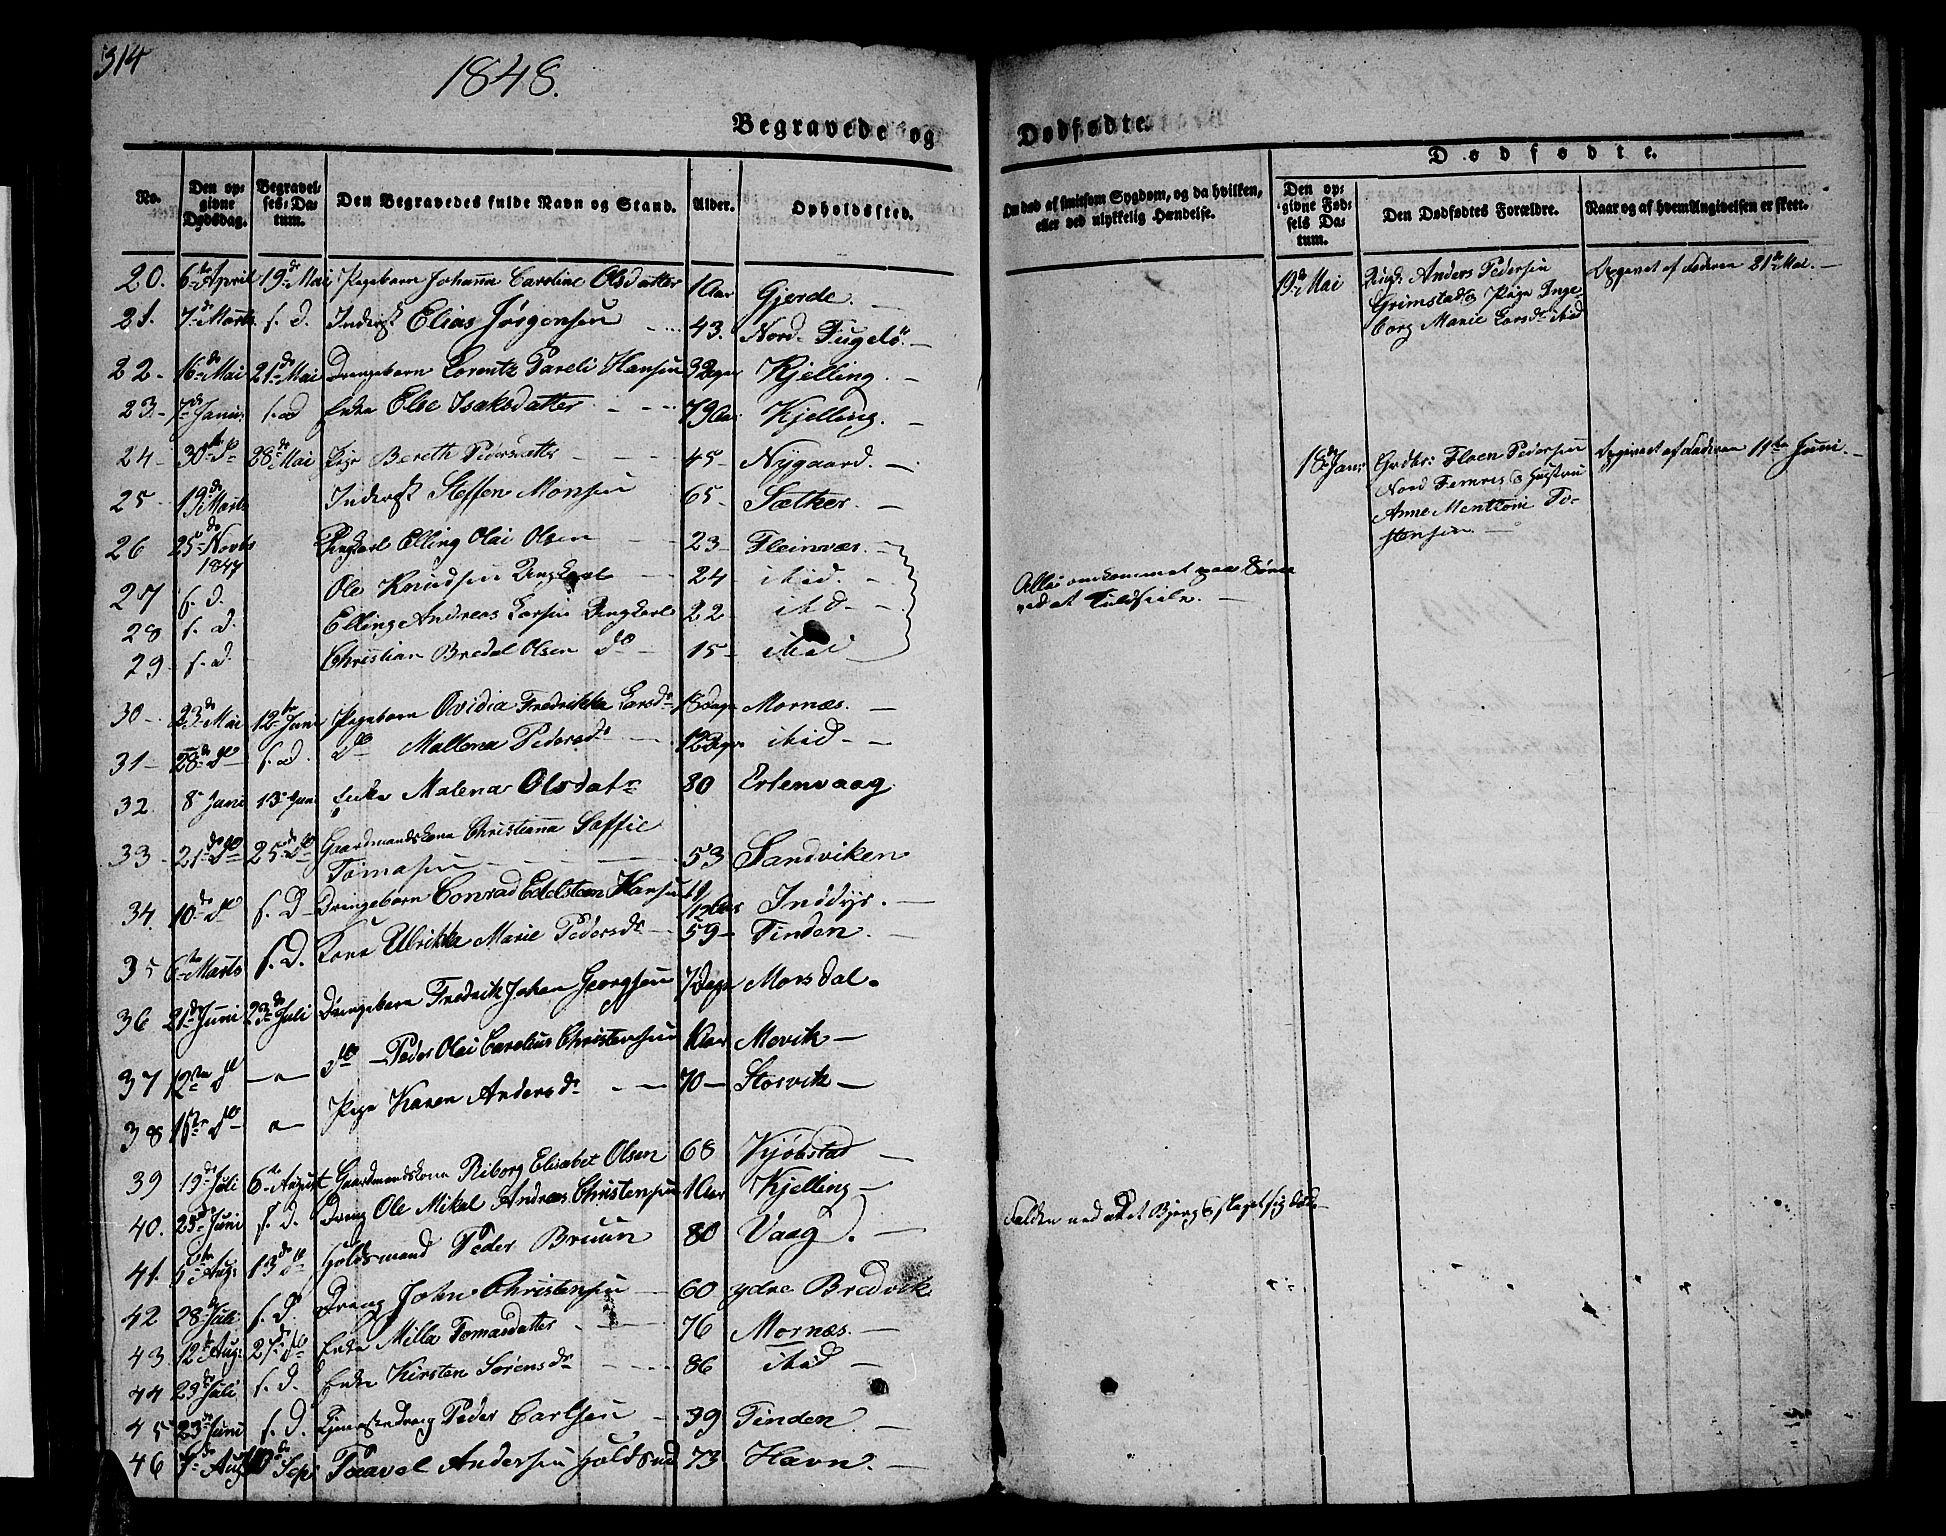 314
1848.
Begravede og
Dødfødte.
Dødfødte.
No.
Den opgivne Dødsdag.
Begravelses-Datum.
Den Begravedes fulde Navn og Stand.
Alder.
Opholdssted.
Om død af smitsom Sygdom, og da hvilken, eller ved ulykkelig Hændelse.
Den opgivne Fødsels Datum.
Den Dødfødtes Forældre.
Naar og af hvem Angivelsen er skeet.
20. 6te April 19de Mai Pigebarn Johanna Caroline Olsdatter 1 Aar Gjerde.
21. 7de Marts s. D. Inderst Elias Jørgensen 43. Nord Fugelö.
22 16de Mai 21de Mai Drengebarn Lorentz Pareli Hansen Kjelling.
23. 7de Juni s. D. Enke Else Isaksdatter 79 Aar Kjelling.
24 30te Do 28de Mai Pige Bereth Pedersdatter 45 Nygaard.
25 19de Marts Inderst Steffen Monsen 65 Sæther.
26 25de Novbr 1847 Ungkarl Elling Olai Olsen 23 Fleinvær.
27 s. d. Ole Knudsen Ungkarl 24 ibid.
28 s. d. Elling Andreas Larsen Ungkarl 22 ibid
29 s. d. Christian Bredal Olsen do 15 ibid
30 23de Mai 12te Juni Pigebarn Ovidia Fredrikka Larsdr Mornæs.
31 28de Do s. D. do Mallena Pedersdr 12 Dage ibid
32. 8 Juni 13 Juni Enke Malena Olsdatr 80 Ertenvaag
33 21de Do 25de Do Gaardmandskone Christianna Saffie
Tomasen 53 Sandviken
34. 10de Do s. D. Drengebarn Conrad Edelsteen Hansen Inddyr.
35 6te Marts s. D. Kone Ulrikke Marie Pedersdr 59 Tinden.
36 21de Juni 23de Juli Drengebarn Fredrik Johan Georgsen 7 Dage Morsdal.
37 12te Do do Peder Olai Carelius Christensen 1 Aar Movik
38 Do Pige Karen Andersdr 70 Storvik
39 19de Juli 6te August Gaardmandskone Riborg Elisabet Olsen 68 Kjøbstad
40. 23de Juni s. D. Dreng Ole Mikal Andreas Christensen 1 Aar Kjelling
41. 5te Aug: 13de Do Holdsmand Peder Bruun 80 Vaag.
42 28de Juli s. D. Dreng John Christensen 60 ydre Bredvik
43. 12te Aug: 27de Do Enke Milla Tomasdatter 76 Mornæs.
44 29de Juli s. D. Enke Kirsten Sørensdr 86 ibid
45 23de Juni s. D. Tjenestedreng Peder Carlsen 39 Tinden.
46 7de Aug Sepr Paavel Andersen Holdsmd 73 Havn.
19de Mai
Ungk: Anders Pedersen
Grimstad & Pige Inge-
borg Marie Larsdr ibid
Opgivet af Faderen 21de Mai.
18de Janr
Gaardbr: Floen Pedersen
Nord Femris & Hustru
Anne Mentzoni To-
stensen
Opgivet af Faderen 11te Juni.
Alle omkommet paa Søen
ved at kuldseile.
Falden ned af et Bjerg & slaget sig død